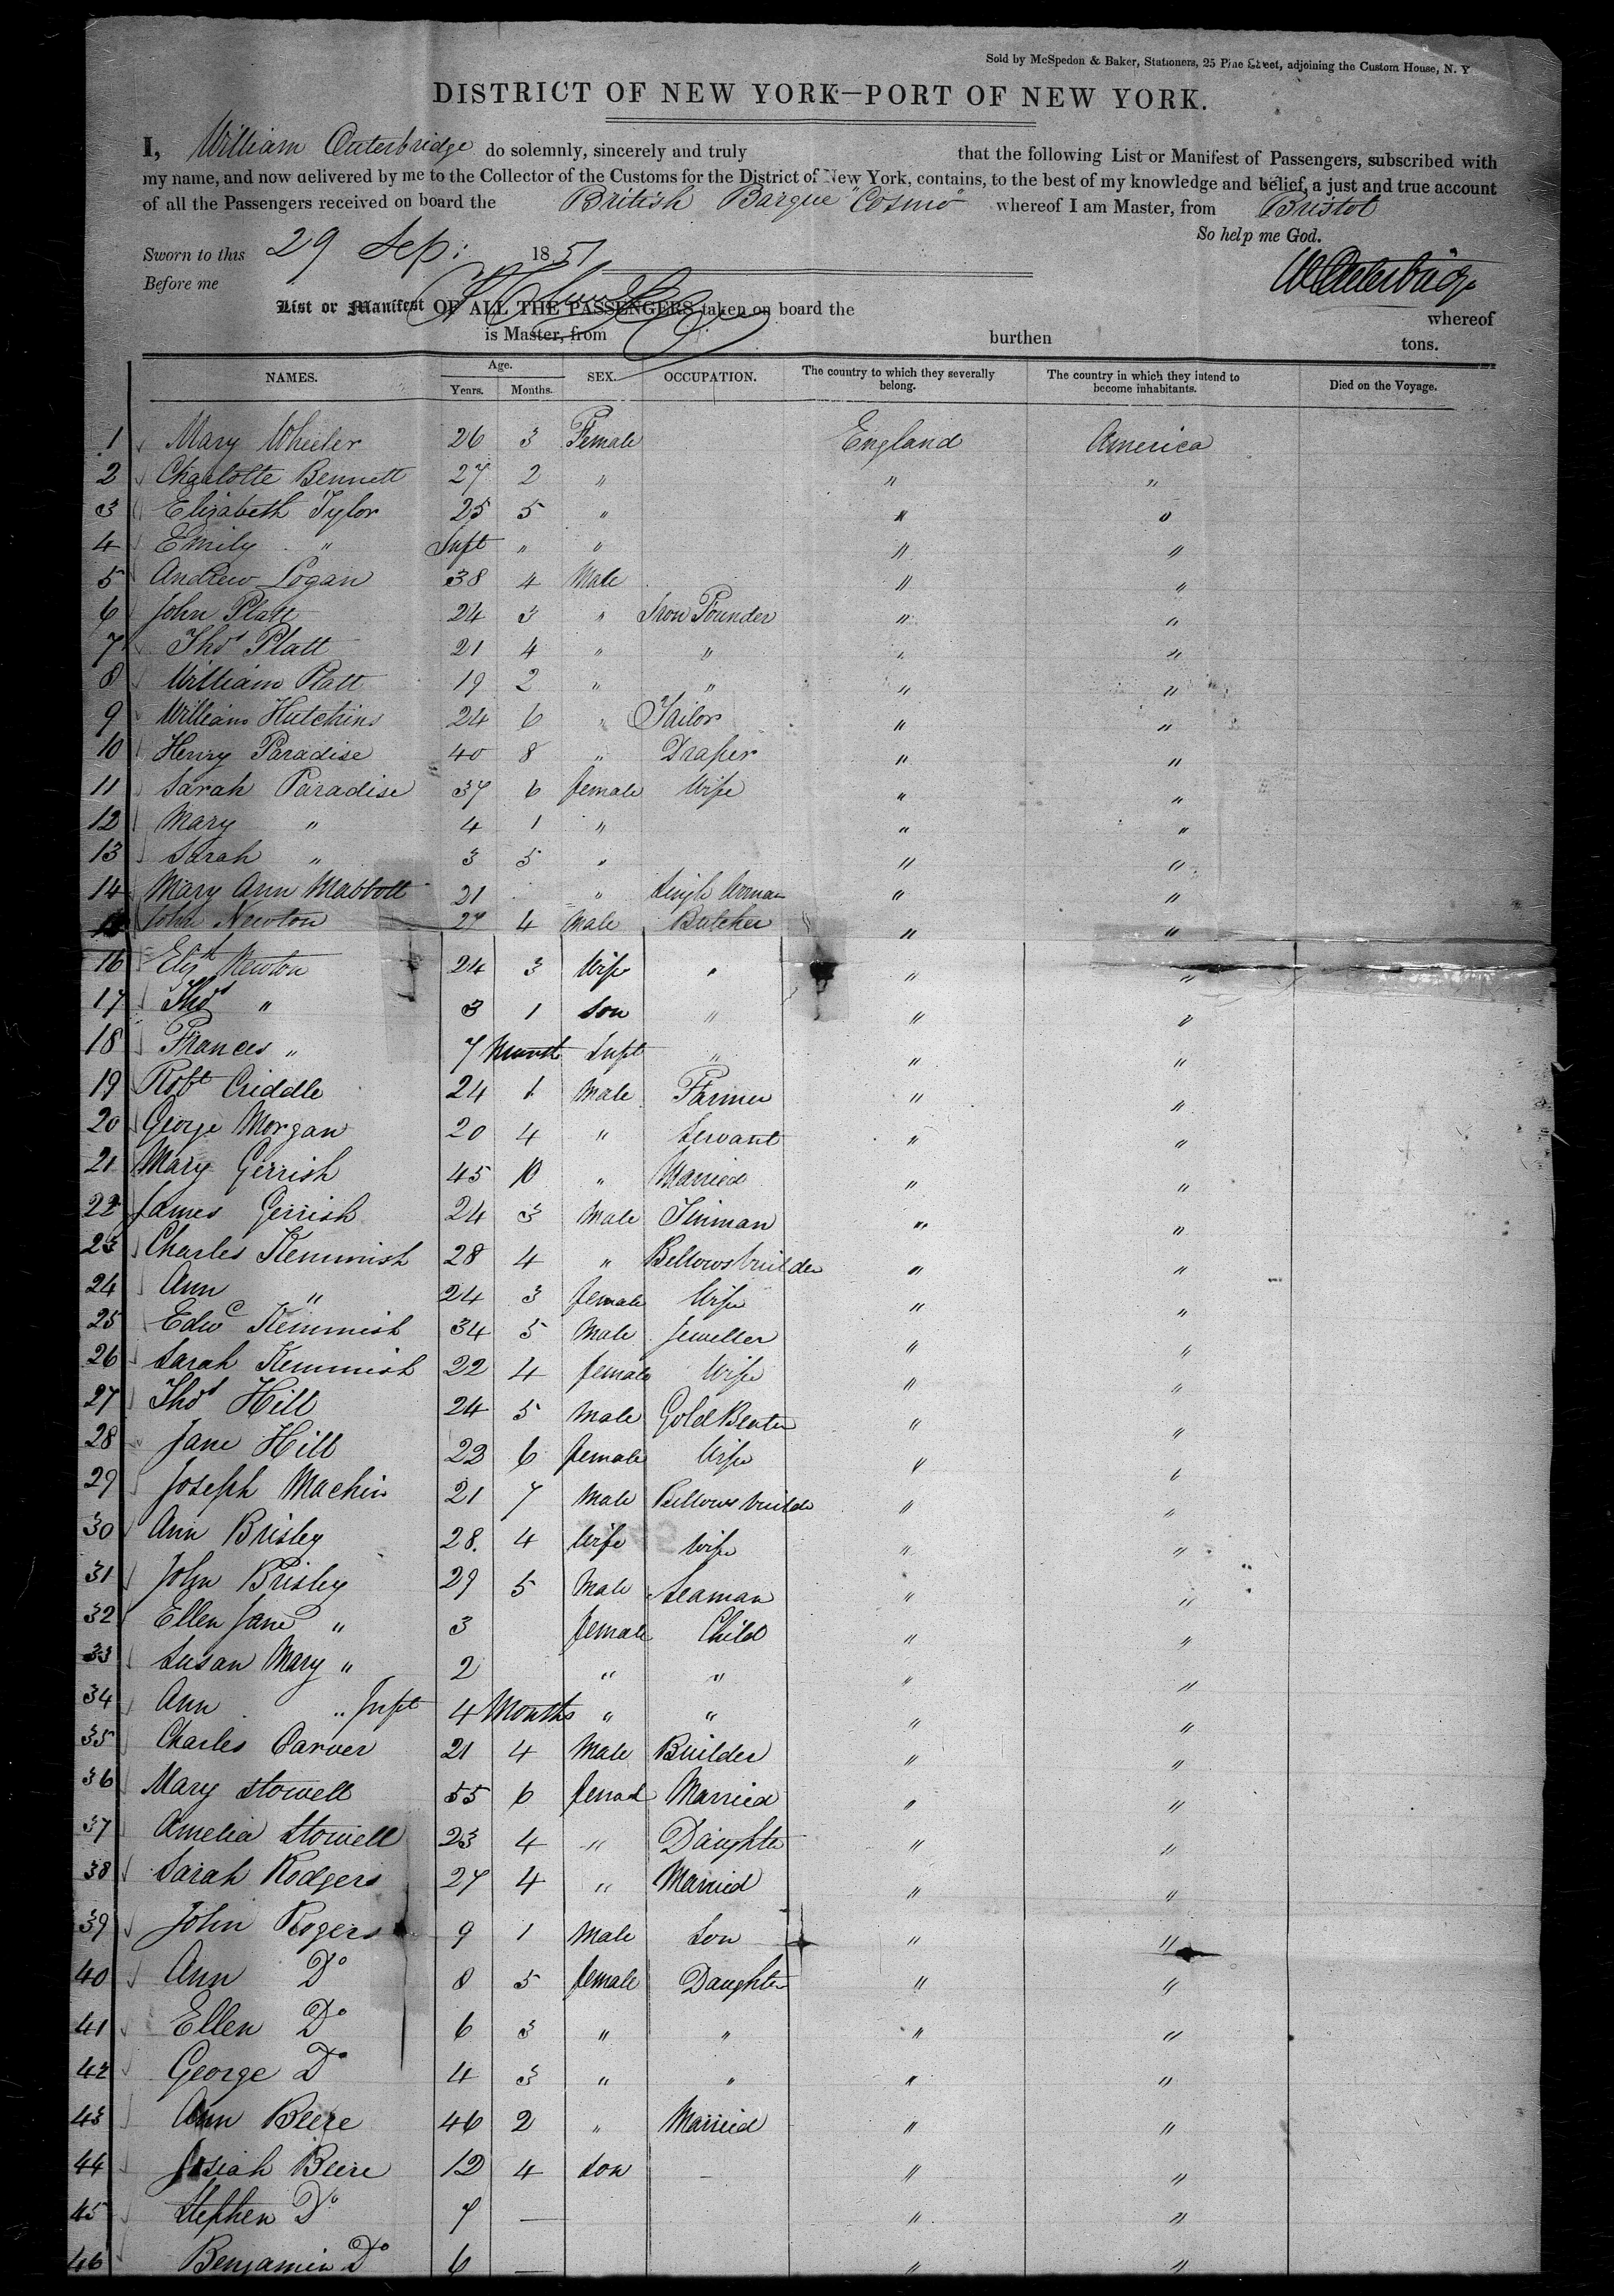 Sold by McSpedon & Baker, Stationers, 25 Pine Street, adjoining the Custom House, N. Y
DISTRICT OF NEW YORK—PORT OF NEW YORK.
I, William Outerbridge do solemnly, sincerely and truly that the following List or Manifest of Passengers, subscribed with
my name, and now delivered by me to the Collector of the Customs for the District of New York, contains, to the best of my knowledge and belief, a just and true account
of all the Passengers received on board the British Barque "Cosmo" whereof I am Master, from Bristol
So help me God.
Sworn to this 29 Sep: 1851
WOuterbridge
Before me
List or Manifest OF ALL THE PASSENGERS taken on board the whereof
is Master, from burthen tons.
NAMES. Age. Years. Months. SEX. OCCUPATION. The country to which they severally belong. The country in which they intend to become inhabitants. Died on the Voyage.
1 Mary Wheeler 26 3 Female England America
2 Charlotte Bennett 27 2 " " "
3 Elizabeth Tylor 25 5 " " "
4 Emily " Inft " " " "
5 Andrew Logan 38 4 Male " "
6 John Platt 24 3 " Iron Founder " "
7 Thos Platt 21 4 " " " "
8 William Platt 19 2 " " " "
9 William Hutchins 24 6 " Tailor " "
10 Henry Paradise 40 8 " Draper " "
11 Sarah Paradise 37 6 female Wife " "
12 Mary " 4 1 " " "
13 Sarah " 3 5 " " "
14 Mary Ann Mabbott 21 " Single Woman " "
John Newton 27 4 Male Butcher " "
16 Elizth Newton 24 3 Wife " " "
17 Thos " 3 1 Son " " "
18 Frances " 7 Month Inft " " "
19 Robt Criddle 24 1 Male Farmer " "
20 George Morgan 20 4 " Servant " "
21 Mary Gerrish 45 10 " Married " "
22 James Gerrish 24 3 Male Tinman " "
23 Charles Kemmish 28 4 " Bellows builder " "
24 Ann " 24 3 female Wife " "
25 Edwd Kemmish 34 5 Male Jeweller " "
26 Sarah Kemmish 22 4 female Wife " "
27 Thos Hill 24 5 Male Gold Beater " "
28 Jane Hill 22 6 female Wife " "
29 Joseph Machin 21 7 Male Bellows builder " "
30 Ann Brisley 28. 4 Wife Wife " "
31 John Brisley 29 5 Male Seaman " "
32 Ellen Jane " 3 female Child " "
33 Susan Mary " 2 " " " "
34 Ann " Inft 4 Months " " " "
35 Charles Carver 21 4 Male Builder " "
36 Mary Stowell 55 6 femal Married " "
37 Amelia Stowell 23 4 " Daughter " "
38 Sarah Rodgers 27 4 " Married " "
39 John Rogers 9 1 Male Son " "
40 Ann Do 8 5 female Daughter " "
41 Ellen Do 6 3 " " " "
42 George Do 4 3 " " " "
43 Ann Beere 46 2 " Married " "
44 Josiah Beere 12 4 Son — " "
45 Stephen Do 7 — " "
46 Benjamin Do 6 — " "